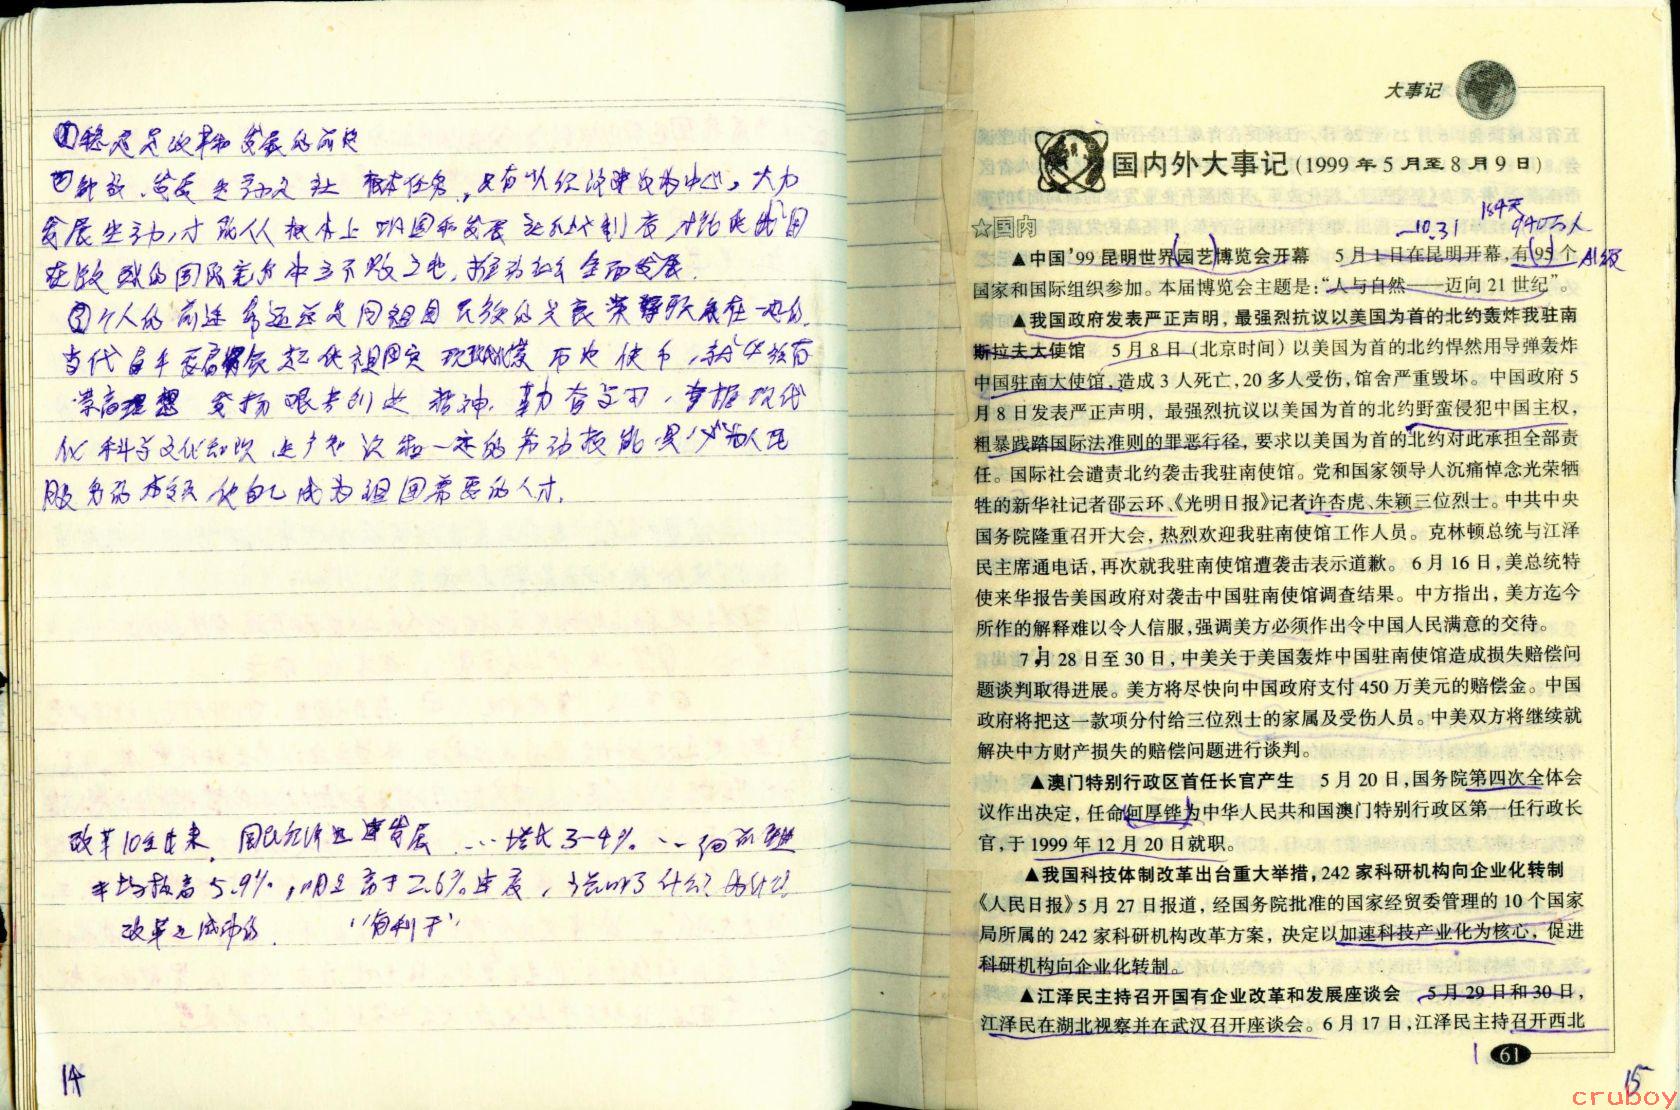 ①稳定是改革和发展的前提
②解放、发展生产力 社 根本任务,只有以经济建设为中心,大力
发展生产力,才能从根本上巩固和发展社会主义制度,才能使我国
在激烈的国际竞争中立于不败之地,推动社会全面发展.
③个人的前途命运总是同祖国民族的兴衰荣辱联系在一起的
当代青年
崇高理想 发扬艰苦创业精神,勤奋学习,掌握现代
化科学文化知识 劳动技能 为人民
服务的本领 使自己成为祖国需要的人才.
改革10年来, 国民经济迅速发展 …增长3-4%.
平均提高5.9%,明显高于2.6%速度,
改革是成功的. "有利于"
14
大事记
国内外大事记(1999年5月至8月9日)
184天
940万人
-10.31
☆国内
▲中国'99昆明世界(园艺)博览会开幕 5月1日在昆明开幕,有(95)个
国家和国际组织参加。本届博览会主题是:“人与自然——迈向21世纪”。
▲我国政府发表严正声明,最强烈抗议以美国为首的北约轰炸我驻南
斯拉夫大使馆 5月8日(北京时间)以美国为首的北约悍然用导弹轰炸
中国驻南大使馆,造成3人死亡,20多人受伤,馆舍严重毁坏。中国政府5
月8日发表严正声明,最强烈抗议以美国为首的北约野蛮侵犯中国主权,
粗暴践踏国际法准则的罪恶行径,要求以美国为首的北约对此承担全部责
任。国际社会谴责北约袭击我驻南使馆。党和国家领导人沉痛悼念光荣牺
牲的新华社记者邵云环、《光明日报》记者许杏虎、朱颖三位烈士。中共中央
国务院隆重召开大会,热烈欢迎我驻南使馆工作人员。克林顿总统与江泽
民主席通电话,再次就我驻南使馆遭袭击表示道歉。6月16日,美总统特
使来华报告美国政府对袭击中国驻南使馆调查结果。中方指出,美方迄今
所作的解释难以令人信服,强调美方必须作出令中国人民满意的交待。
7月28日至30日,中美关于美国轰炸中国驻南使馆造成损失赔偿问
题谈判取得进展。美方将尽快向中国政府支付450万美元的赔偿金。中国
政府将把这一款项分付给三位烈士的家属及受伤人员。中美双方将继续就
解决中方财产损失的赔偿问题进行谈判。
▲澳门特别行政区首任长官产生 5月20日,国务院第四次全体会
议作出决定,任命何厚铧为中华人民共和国澳门特别行政区第一任行政长
官,于1999年12月20日就职。
▲我国科技体制改革出台重大举措,242家科研机构向企业化转制
《人民日报》5月27日报道,经国务院批准的国家经贸委管理的10个国家
局所属的242家科研机构改革方案,决定以加速科技产业化为核心,促进
科研机构向企业化转制。
▲江泽民主持召开国有企业改革和发展座谈会 5月29日和30日,
江泽民在湖北视察并在武汉召开座谈会。6月17日,江泽民主持召开西北
1
61
15
cruboy